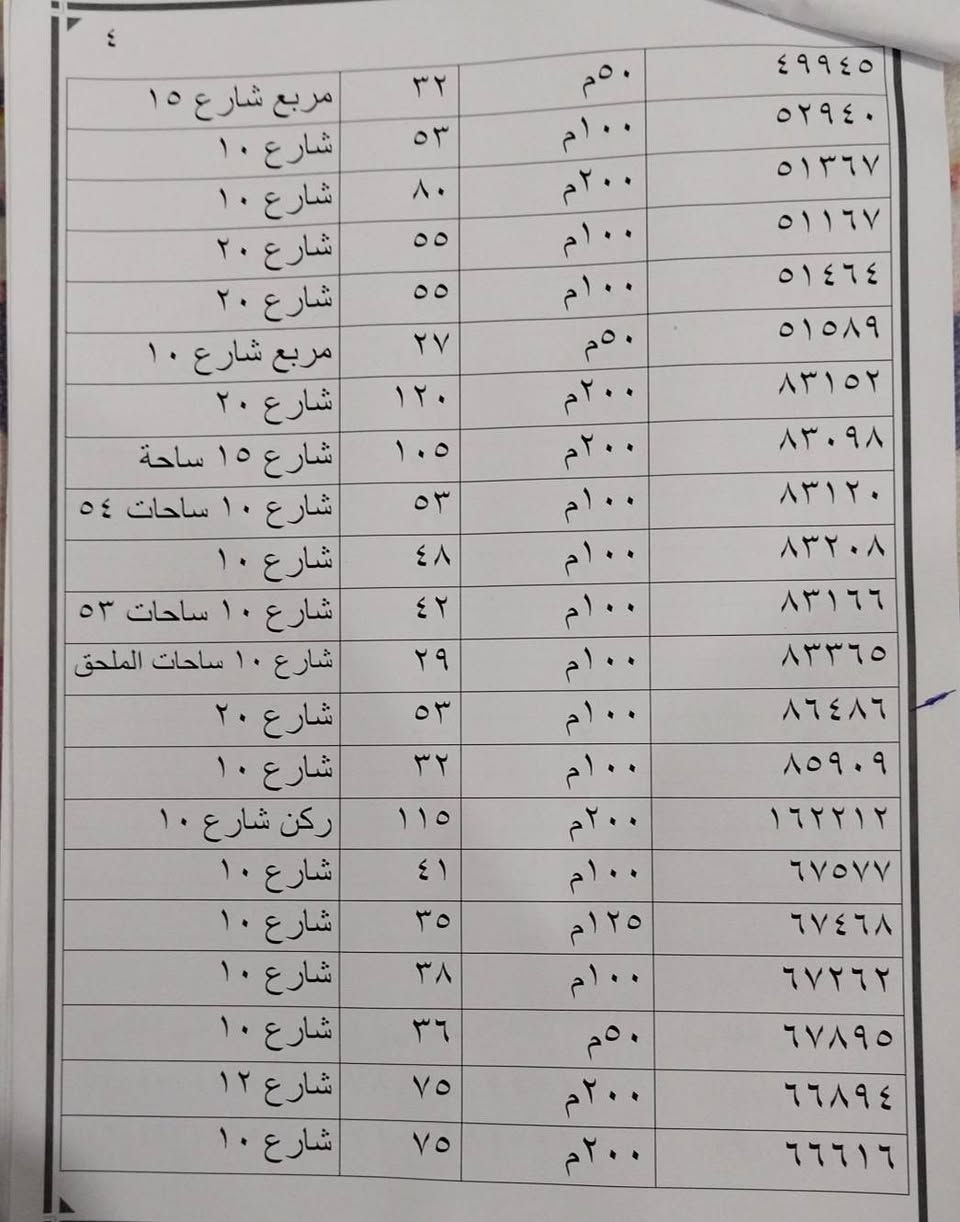 ٤
٤٩٩٤٥ ٥٠م ٣٢ مربع شارع ١٥
٥٢٩٤٠ ١٠٠م ٥٣ شارع ١٠
٥١٣٦٧ ٢٠٠م ٨٠ شارع ١٠
٥١١٦٧ ١٠٠م ٥٥ شارع ٢٠
٥١٤٦٤ ١٠٠م ٥٥ شارع ٢٠
٥١٥٨٩ ٥٠م ٢٧ مربع شارع ١٠
٨٣١٥٢ ٢٠٠م ١٢٠ شارع ٢٠
٨٣٠٩٨ ٢٠٠م ١٠٥ شارع ١٥ ساحة
٨٣١٢٠ ١٠٠م ٥٣ شارع ١٠ ساحات ٥٤
٨٣٢٠٨ ١٠٠م ٤٨ شارع ١٠
٨٣١٦٦ ١٠٠م ٤٢ شارع ١٠ ساحات ٥٣
٨٣٣٦٥ ١٠٠م ٢٩ شارع ١٠ ساحات الملحق
٨٦٤٨٦ ١٠٠م ٥٣ شارع ٢٠
٨٥٩٠٩ ١٠٠م ٣٢ شارع ١٠
١٦٢٢١٢ ٢٠٠م ١١٥ ركن شارع ١٠
٦٧٥٧٧ ١٠٠م ٤١ شارع ١٠
٦٧٤٦٨ ١٢٥م ٣٥ شارع ١٠
٦٧٢٦٢ ١٠٠م ٣٨ شارع ١٠
٦٧٨٩٥ ٥٠م ٣٦ شارع ١٠
٦٦٨٩٤ ٢٠٠م ٧٥ شارع ١٢
٦٦٦١٦ ٢٠٠م ٧٥ شارع ١٠